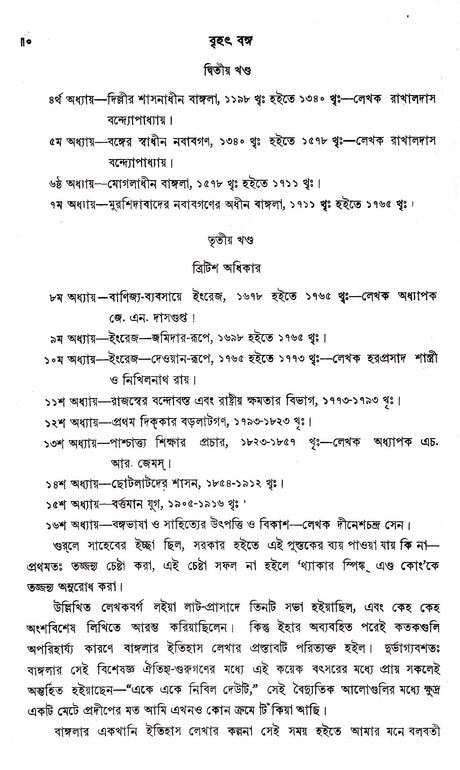 ॥০ বৃহৎ বঙ্গ
দ্বিতীয় খণ্ড
৪র্থ অধ্যায়—দিল্লীর শাসনাধীন বাঙ্গলা, ১১৯৮ খৃঃ হইতে ১৩৪০ খৃঃ—লেখক রাখালদাস
বন্দ্যোপাধ্যায়।
৫ম অধ্যায়—বঙ্গের স্বাধীন নবাবগণ, ১৩৪০ খৃঃ হইতে ১৫৭৮ খৃঃ—লেখক রাখালদাস
বন্দ্যোপাধ্যায়।
৬ষ্ঠ অধ্যায়—মোগলাধীন বাঙ্গলা, ১৫৭৮ খৃঃ হইতে ১৭১১ খৃঃ।
৭ম অধ্যায়—মুরশিদাবাদের নবাবগণের অধীন বাঙ্গলা, ১৭১১ খৃঃ হইতে ১৭৬৫ খৃঃ।
তৃতীয় খণ্ড
ব্রিটিশ অধিকার
৮ম অধ্যায়—বাণিজ্য-ব্যবসায়ে ইংরেজ, ১৬৭৮ হইতে ১৭৬৫ খৃঃ—লেখক অধ্যাপক
জে. এন. দাসগুপ্ত।
৯ম অধ্যায়—ইংরেজ—জমিদার-রূপে, ১৬৯৮ হইতে ১৭৬৫ খৃঃ।
১০ম অধ্যায়—ইংরেজ—দেওয়ান-রূপে, ১৭৬৫ হইতে ১৭৭৩ খৃঃ—লেখক হরপ্রসাদ শাস্ত্রী
ও নিখিলনাথ রায়।
১১শ অধ্যায়—রাজস্বের বন্দোবস্ত এবং রাষ্ট্রীয় ক্ষমতার বিভাগ, ১৭৭৩-১৭৯৩ খৃঃ।
১২শ অধ্যায়—প্রথম দিক্‌কার বড়লাটগণ, ১৭৯৩-১৮২৩ খৃঃ।
১৩শ অধ্যায়—পাশ্চাত্ত্য শিক্ষার প্রচার, ১৮২৩-১৮৫৭ খৃঃ—লেখক অধ্যাপক এচ.
আর. জেমস্।
১৪শ অধ্যায়—ছোটলাটদের শাসন, ১৮৫৪-১৯১২ খৃঃ।
১৫শ অধ্যায়—বর্ত্তমান যুগ, ১৯০৫-১৯১৬ খৃঃ।
১৬শ অধ্যায়—বঙ্গভাষা ও সাহিত্যের উৎপত্তি ও বিকাশ—লেখক দীনেশচন্দ্র সেন।
গুর্‌লে সাহেবের ইচ্ছা ছিল, সরকার হইতে এই পুস্তকের ব্যয় পাওয়া যায় কি না—
প্রথমতঃ তজ্জন্য চেষ্টা করা, এই চেষ্টা সফল না হইলে ‘থ্যাকার স্পিঙ্ক্ এণ্ড কোং’কে
তজ্জন্য অনুরোধ করা।
উল্লিখিত লেখকবর্গ লইয়া লাট-প্রাসাদে তিনটি সভা হইয়াছিল, এবং কেহ কেহ
অংশবিশেষ লিখিতে আরম্ভ করিয়াছিলেন। কিন্তু ইহার অব্যবহিত পরেই কতকগুলি
অপরিহার্য্য কারণে বাঙ্গলার ইতিহাস লেখার প্রস্তাবটি পরিত্যক্ত হইল। দুর্ভাগ্যবশতঃ
বাঙ্গলার সেই বিশেষজ্ঞ ঐতিহ্য-গুরুগণের মধ্যে এই কয়েক বৎসরের মধ্যে প্রায় সকলেই
অন্তর্হিত হইয়াছেন—“একে একে নিবিল দেউটি,” সেই বৈদ্যুতিক আলোগুলির মধ্যে ক্ষুদ্র
একটি মেটে প্রদীপের মত আমি এখনও কোন ক্রমে টিঁকিয়া আছি।
বাঙ্গলার একখানি ইতিহাস লেখার কল্পনা সেই সময় হইতে আমার মনে বলবতী